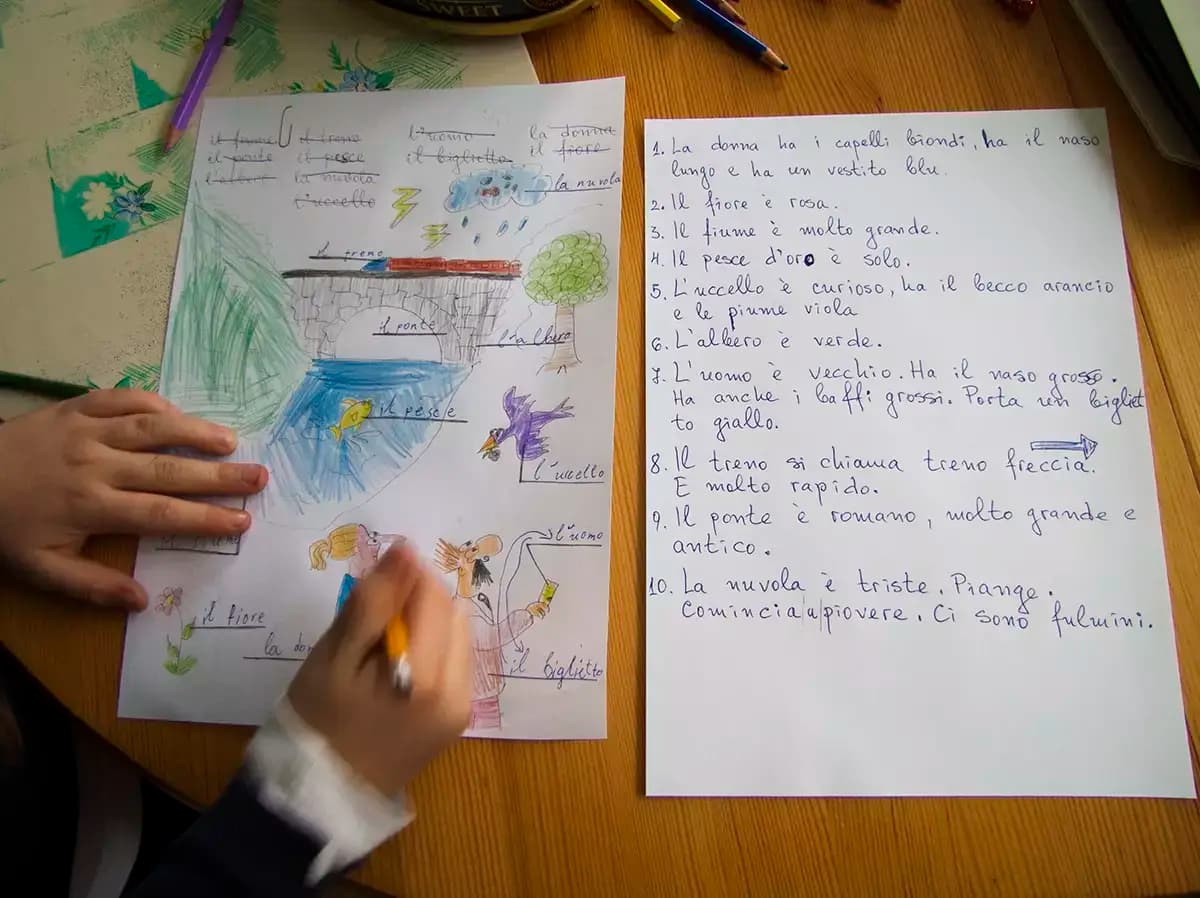 SWEET
il fiume il treno l'uomo la donna
il ponte il pesce il biglietto il fiore
l'albero la nuvola
l'uccello
la nuvola
il treno
il ponte
l'albero
il pescie
l'uccello
l'uomo
il fiore
la don
il biglietto
1. La donna ha i capelli biondi, ha il naso
lungo e ha un vestito blu.
2. Il fiore è rosa.
3. Il fiume è molto grande.
4. Il pesce d'oro è solo.
5. L'uccello è curioso, ha il becco arancio
e le piume viola
6. L'albero è verde.
7. L'uomo è vecchio. Ha il naso grosso.
Ha anche i baffi grossi. Porta un bigliet
to giallo.
8. Il treno si chiama treno freccia.
E molto rapido.
9. Il ponte è romano, molto grande e
antico.
10. La nuvola è triste. Piange.
Comincia a piovere. Ci sono fulmini.